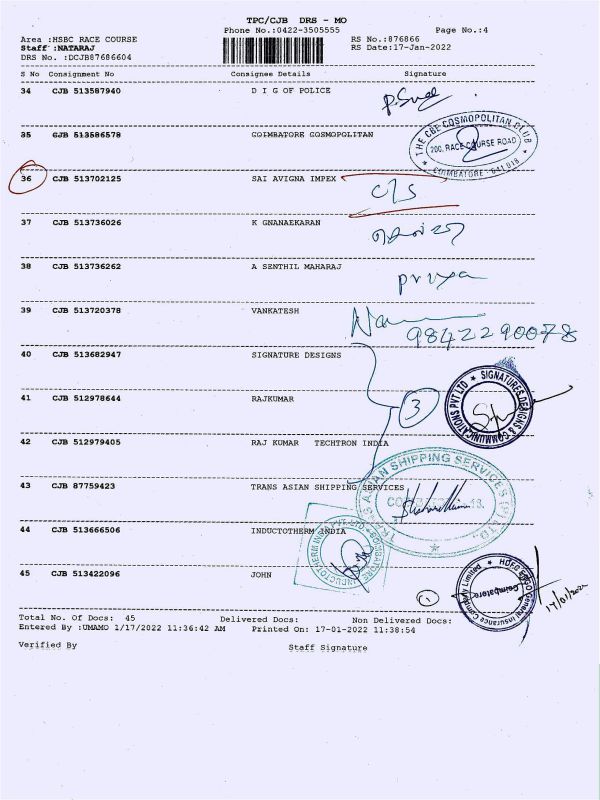 TPC/CJB DRS - MO
Phone No.:0422-3505555 Page No.:4
Area :HSBC RACE COURSE RS No.:876866
Staff :NATARAJ RS Date:17-Jan-2022
DRS No. :DCJB87686604
S No Consignment No Consignee Details Signature
34 CJB 513587940 D I G OF POLICE
35 CJB 513586578 COIMBATORE COSMOPOLITAN
THE CBE COSMOPOLITAN CLUB
200, RACE COURSE ROAD
COIMBATORE - 641 018
36 CJB 513702125 SAI AVIGNA IMPEX
C/S
37 CJB 513736026 K GNANAEKARAN
38 CJB 513736262 A SENTHIL MAHARAJ
Priya
39 CJB 513720378 VANKATESH
9842290078
40 CJB 513682947 SIGNATURE DESIGNS
SIGNATURES DESIGNS & COMMUNICATIONS PVT LTD
41 CJB 512978644 RAJKUMAR
3
42 CJB 512979405 RAJ KUMAR TECHTRON INDIA
43 CJB 87759423 TRANS ASIAN SHIPPING SERVICES
ASIAN SHIPPING SERVICES (P) LTD.,
44 CJB 513666506 INDUCTOTHERM INDIA
INDUCTOTHERM INDIA PVT. LTD. COIMBATORE
45 CJB 513422096 JOHN
1
HDFC ERGO General Insurance Company Limited
Coimbatore
17/01/2022
Total No. Of Docs: 45 Delivered Docs: Non Delivered Docs:
Entered By :UMAMO 1/17/2022 11:36:42 AM Printed On: 17-01-2022 11:38:54
Verified By Staff Signature